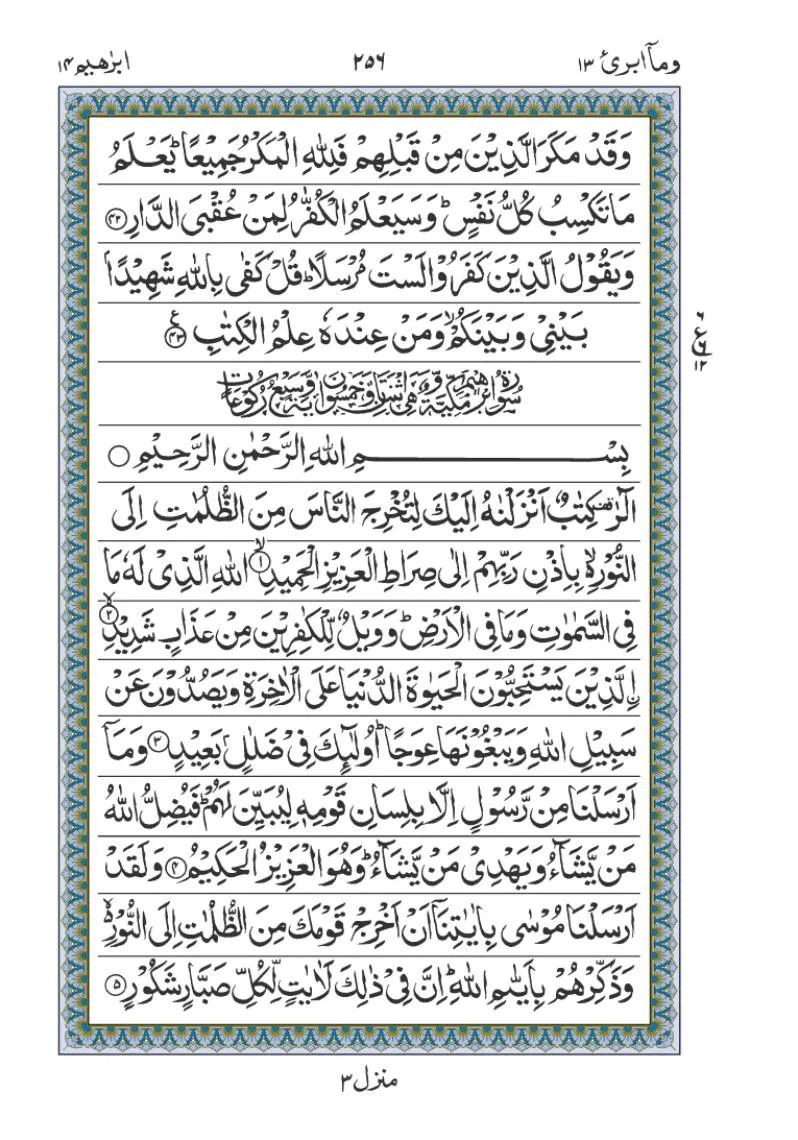 ومآ ابرئ ۱۳ ۲۵۶ ابرٰهيم ۱۴
وَقَدْ مَكَرَ الَّذِيْنَ مِنْ قَبْلِهِمْ فَلِلّٰهِ الْمَكْرُ جَمِيْعًا ؕ يَعْلَمُ
مَا تَكْسِبُ كُلُّ نَفْسٍ ؕ وَسَيَعْلَمُ الْكُفّٰرُ لِمَنْ عُقْبَى الدَّارِ ﴿۴۲﴾
وَيَقُوْلُ الَّذِيْنَ كَفَرُوْا لَسْتَ مُرْسَلًا ؕ قُلْ كَفٰى بِاللّٰهِ شَهِيْدًۢا
بَيْنِيْ وَبَيْنَكُمْ ۙ وَمَنْ عِنْدَهٗ عِلْمُ الْكِتٰبِ ﴿۴۳﴾ ع
۶
ع
۶
۱۲
سُوْرَةُ اِبْرٰهِيْمَ مَكِّيَّةٌ وَّهِيَ اثْنَتَانِ وَخَمْسُوْنَ اٰيَةً وَّسَبْعُ رُكُوْعَاتٍ
بِسْمِ اللّٰهِ الرَّحْمٰنِ الرَّحِيْمِ ○
الٓرٰ ۟ كِتٰبٌ اَنْزَلْنٰهُ اِلَيْكَ لِتُخْرِجَ النَّاسَ مِنَ الظُّلُمٰتِ اِلَى
النُّوْرِ ۙ بِاِذْنِ رَبِّهِمْ اِلٰى صِرَاطِ الْعَزِيْزِ الْحَمِيْدِ ۙ﴿۱﴾ اللّٰهِ الَّذِيْ لَهٗ مَا
فِي السَّمٰوٰتِ وَمَا فِي الْاَرْضِ ؕ وَوَيْلٌ لِّلْكٰفِرِيْنَ مِنْ عَذَابٍ شَدِيْدِ ۙ﴿۲﴾
اۨلَّذِيْنَ يَسْتَحِبُّوْنَ الْحَيٰوةَ الدُّنْيَا عَلَى الْاٰخِرَةِ وَيَصُدُّوْنَ عَنْ
سَبِيْلِ اللّٰهِ وَيَبْغُوْنَهَا عِوَجًا ؕ اُولٰٓئِكَ فِيْ ضَلٰلٍۢ بَعِيْدٍ ﴿۳﴾ وَمَآ
اَرْسَلْنَا مِنْ رَّسُوْلٍ اِلَّا بِلِسَانِ قَوْمِهٖ لِيُبَيِّنَ لَهُمْ ؕ فَيُضِلُّ اللّٰهُ
مَنْ يَّشَآءُ وَيَهْدِيْ مَنْ يَّشَآءُ ؕ وَهُوَ الْعَزِيْزُ الْحَكِيْمُ ﴿۴﴾ وَلَقَدْ
اَرْسَلْنَا مُوْسٰى بِاٰيٰتِنَآ اَنْ اَخْرِجْ قَوْمَكَ مِنَ الظُّلُمٰتِ اِلَى النُّوْرِ ۙ
وَذَكِّرْهُمْ بِاَيّٰىمِ اللّٰهِ ؕ اِنَّ فِيْ ذٰلِكَ لَاٰيٰتٍ لِّكُلِّ صَبَّارٍ شَكُوْرٍ ﴿۵﴾
منزل ۳